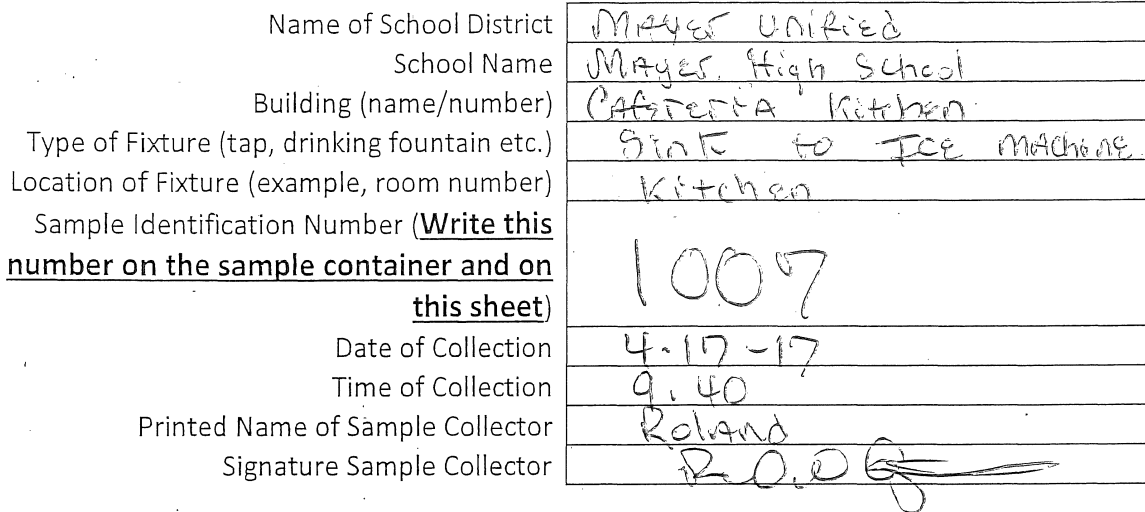 Name of School District Mayer Unified
School Name Mayer High School
Building (name/number) Cafeteria Kitchen
Type of Fixture (tap, drinking fountain etc.) Sink to Ice Machine
Location of Fixture (example, room number) Kitchen
Sample Identification Number (Write this
number on the sample container and on
this sheet) 1007
Date of Collection 4-17-17
Time of Collection 9.40
Printed Name of Sample Collector Roland
Signature Sample Collector